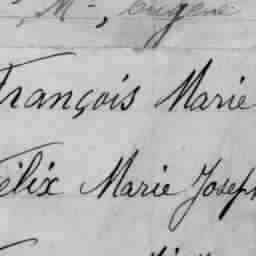 Mie, Eugène
François Marie
Félix Marie Joseph